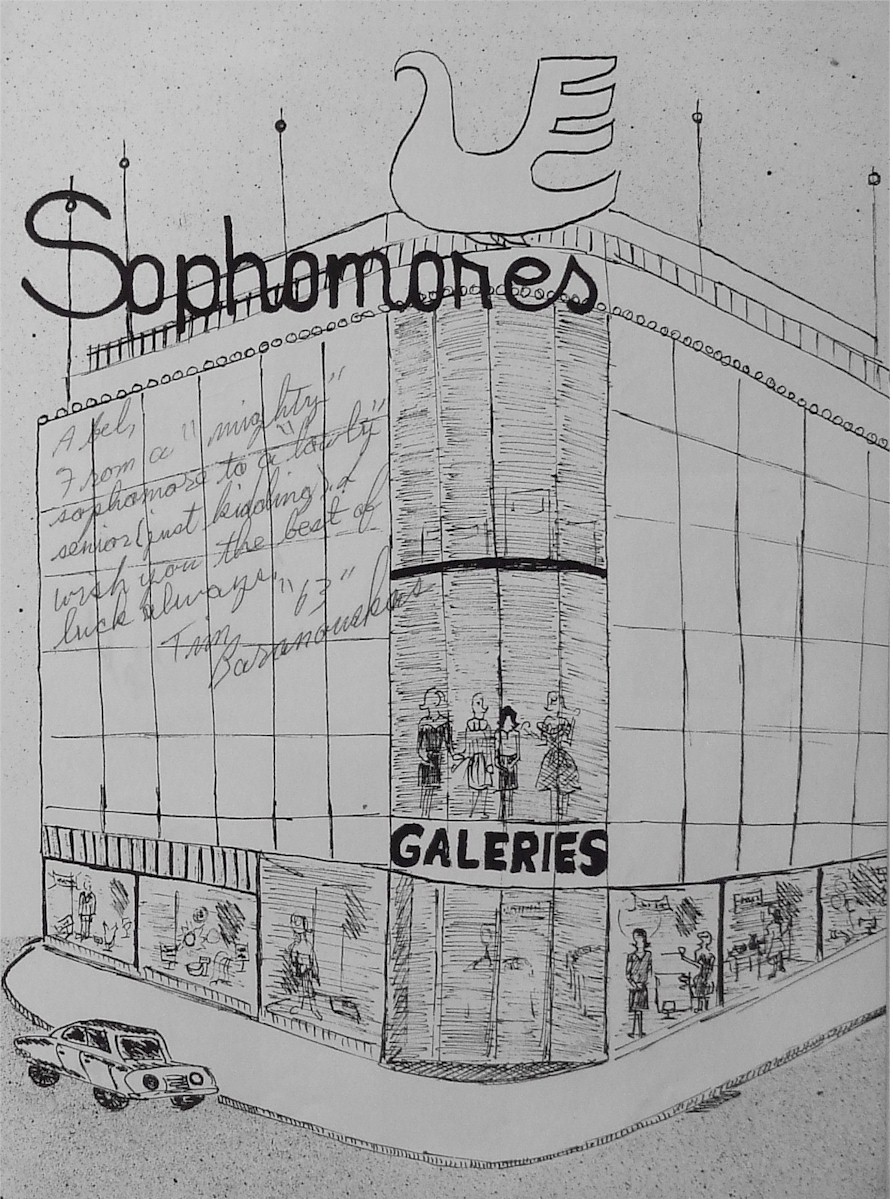 Sophomores
Abel,
From a "mighty"
sophomore to a "lowly"
senior (just kidding). I
wish you the best of
luck always.
Tim "63"
Baranouskas
GALERIES